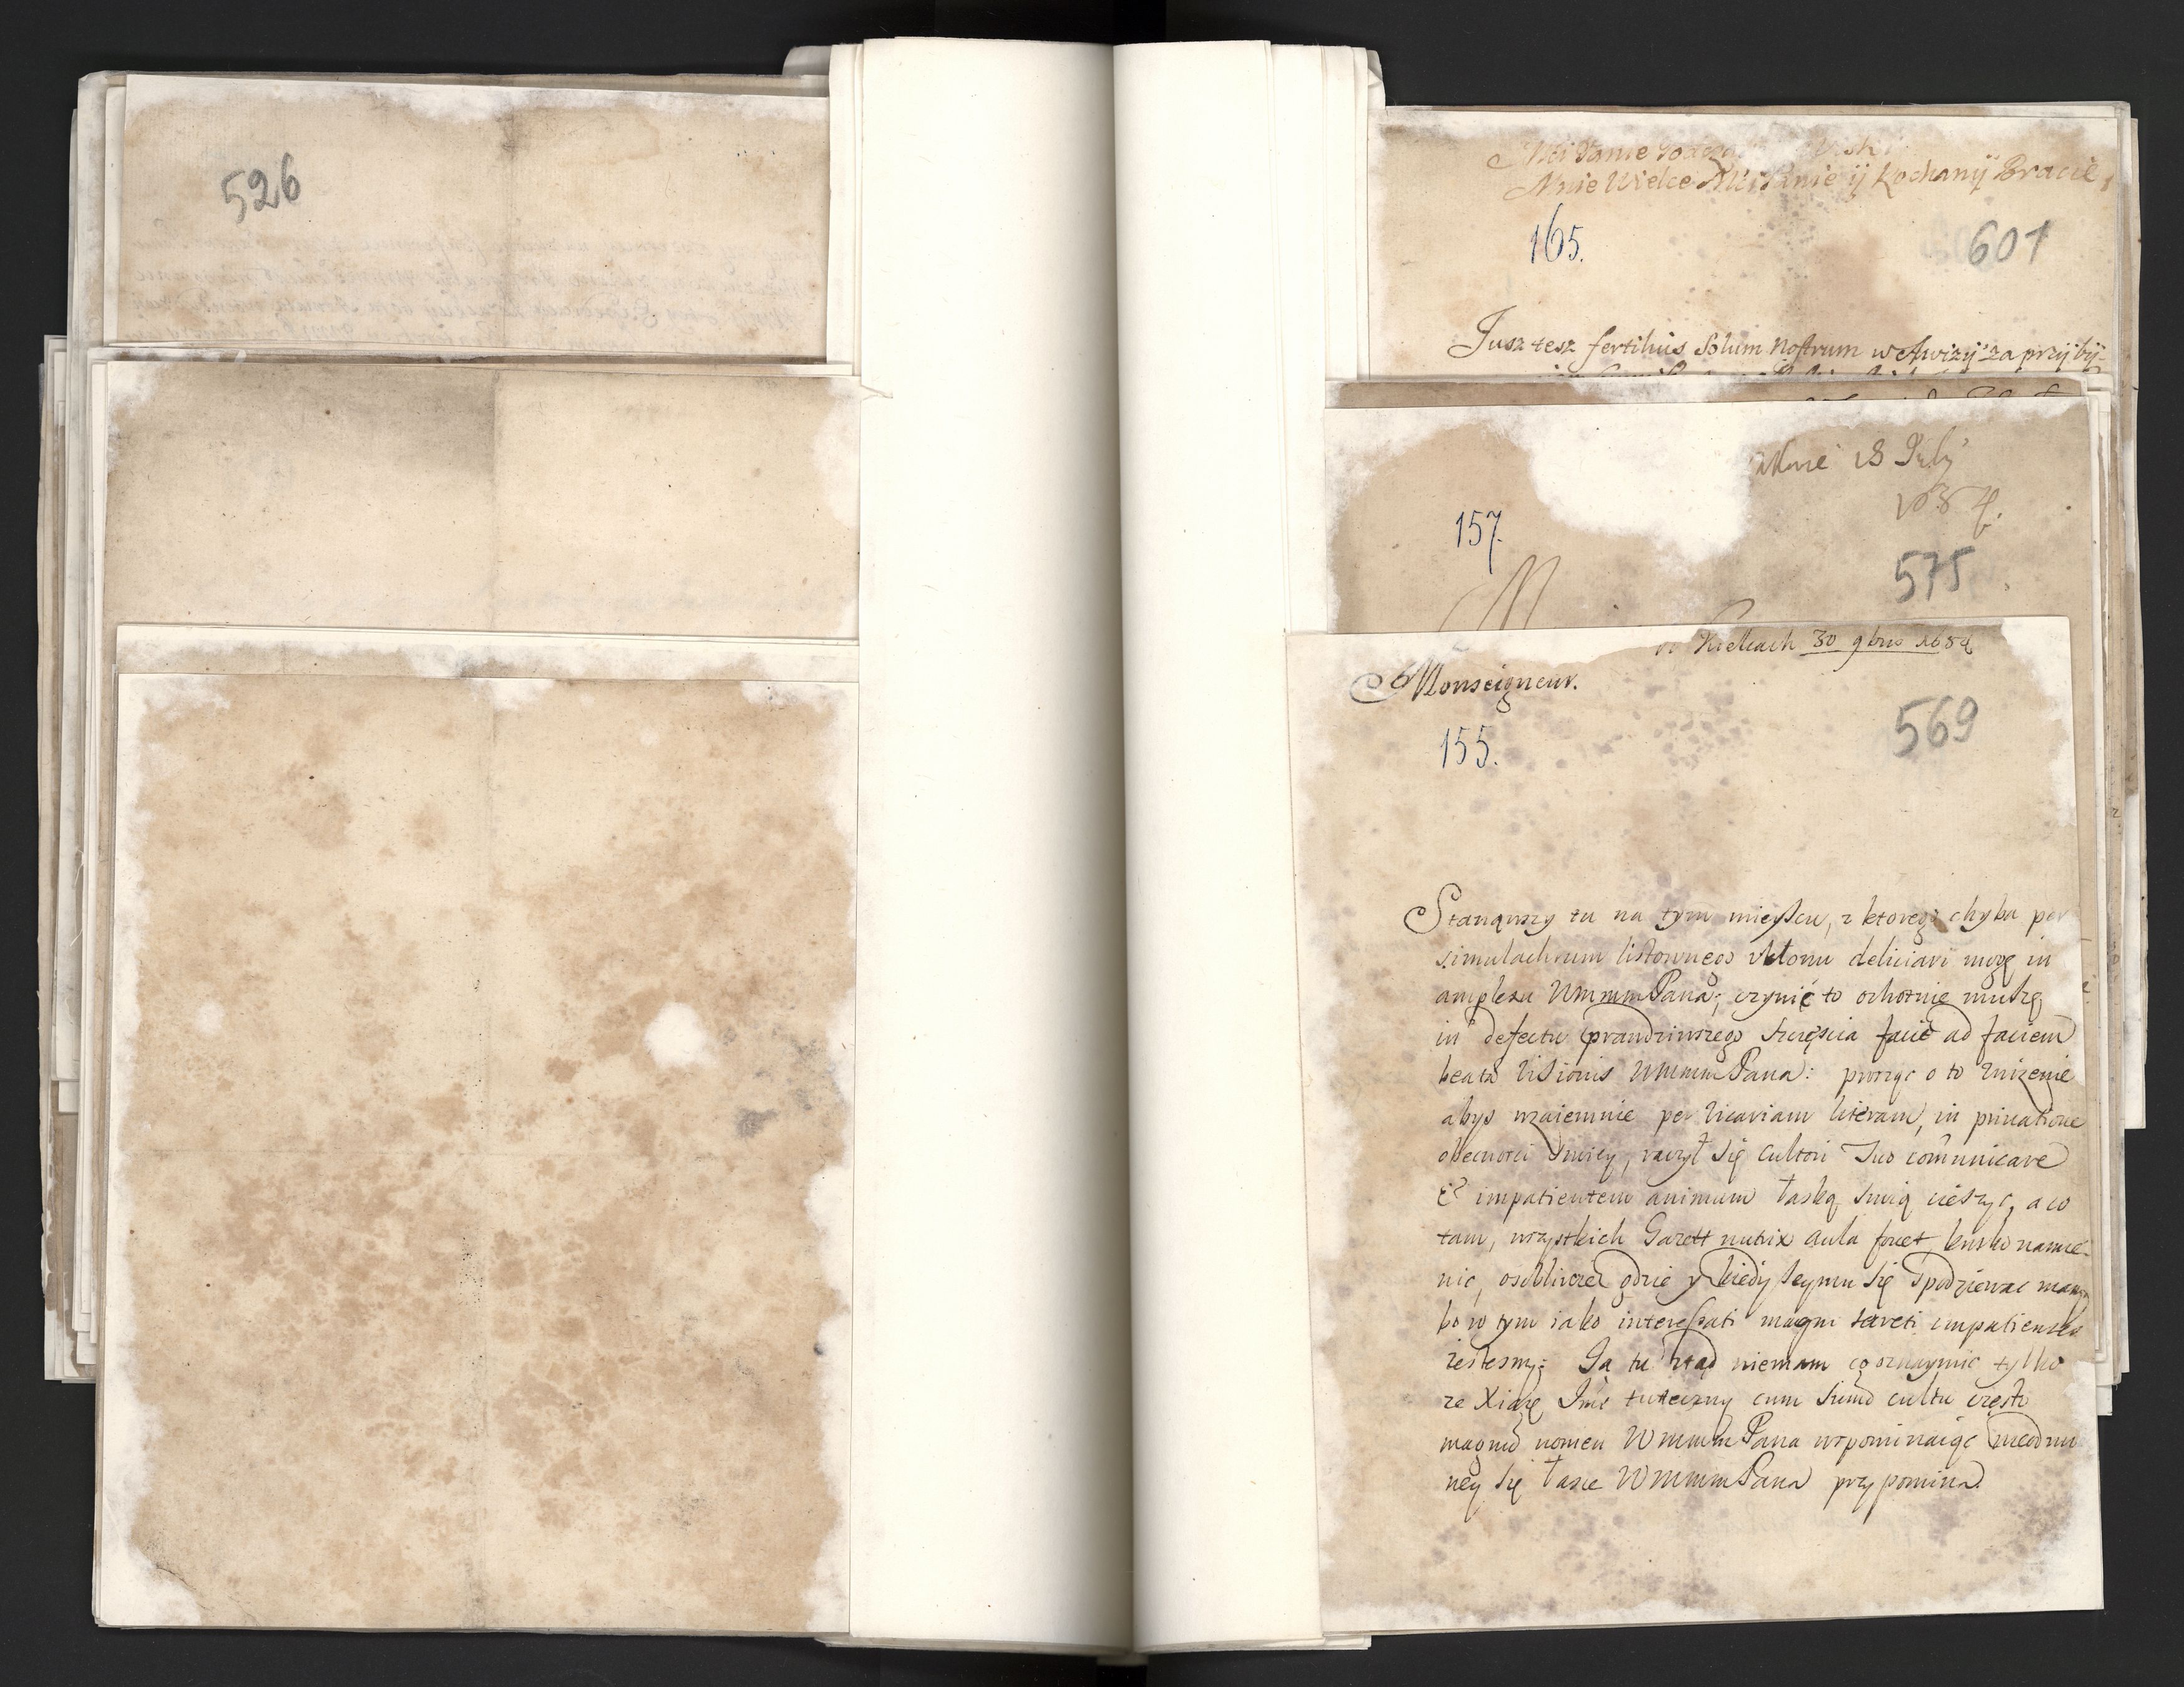 526
Mnie Wielce Mći Panie ij Kochanij Bracie,
165.
601
Jusz tesz fertilius Solum Nostrum w Awizij za przijbij-
18 July
1684.
157.
575
w Kielcach 30 9bris 1684
Monseigneur.
155.
569
Stanąwszy tu na tym mieyscu, z ktorego chyba per
simulachrum listownego ukłonu deliciari mogę in
amplexu WmmmPana; czynić to ochotnie muszę
in defectu prawdziwszego szczęscia facie ad faciem
beatæ visionis WmmmPana: prosząc o to uniżenie
abys wzaiemnie per vicariam literam, in privatione
obecnosci swoiey, raczył się cultori Tuo comunicare
& impatientem animum łaską swoią cieszyc, a co
tam, wszystkich Gazett nutrix aula fovet, krutko namie-
nic, osobliwie gdzie y kiedy seymu się spodziewac mamy
bo w tym iako interessati magni secreti impatientes
iestesmy: Ja tu ztąd niemam co oznaymic tylko
ze Xiąże Jmć tuteczny cum summo cultu często
magnum nomen WmmmPana wspominaiąc nieodmie
ney się łasce WmmmPana przypomina.